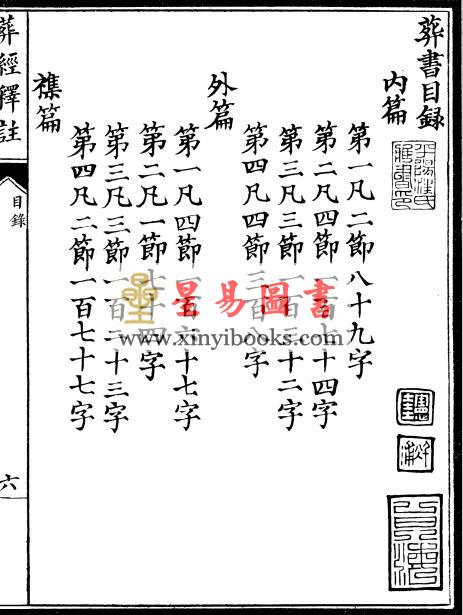 葬書目録
平陽汪氏藏書印
内篇
第一凡二節八十九字
第二凡四節一百七十四字
第三凡三節一百三十二字
第四凡四節三百八字
外篇
第一凡四節一百六十七字
第二凡一節七十四字
第三凡三節一百二十三字
第四凡二節一百七十七字
襍篇
葬經釋註
目錄
六
星易圖書
www.xinyibooks.com